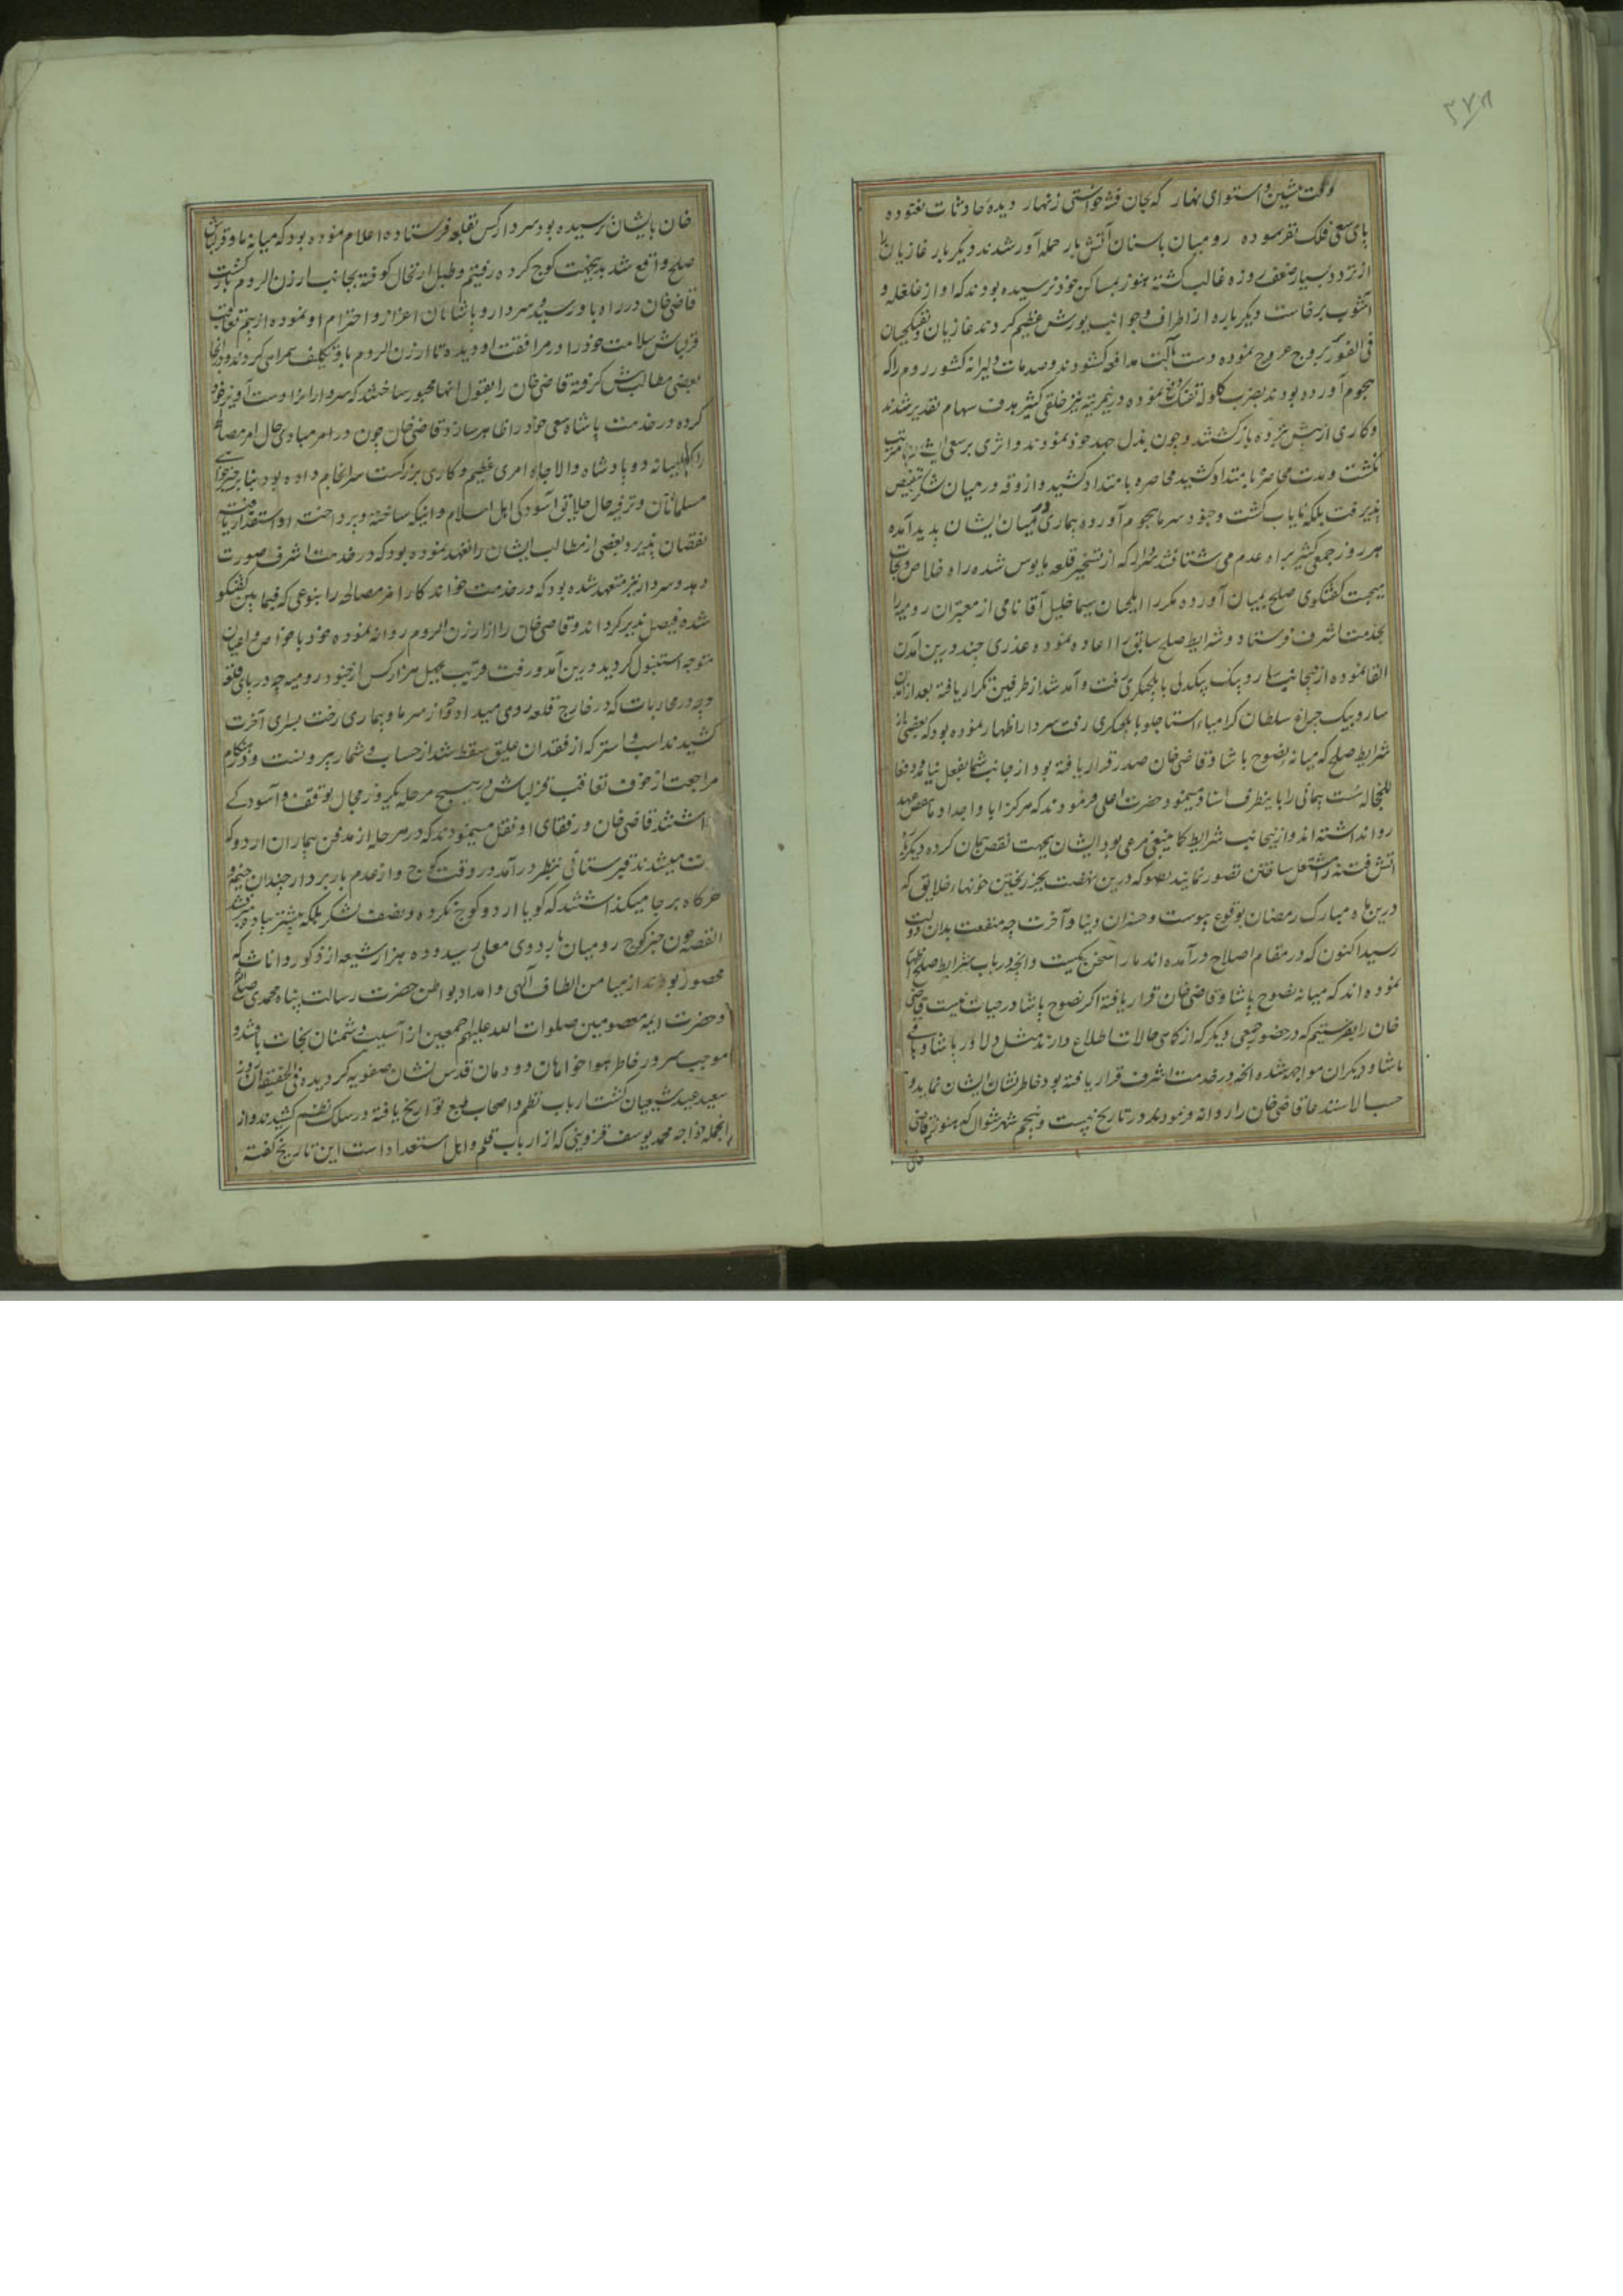 ۳۷۸
وقت پشین و استوای نهار که بجان فتنه خواستی زنهار دیده حادثات نغنوده
پای سعی فلک نفرسوده رومیان باسنان آتش بار حمله آور شدند دیگر بار غازیان را
از تردد بسیار ضعف روزه غالب گشته هنوز بمساکن خود نرسیده بودند که اواز غلغله و
آشوب برخاست دیگر باره از اطراف و جوانب یورش عظیم کردند غازیان و تفنگچیان
فی الفور ببروج عروج نموده دست بآلت مدافعه گشودند و صدمات دلیرانه کشور روم را که
هجوم آورده بودند بضرب گلوله تفنک نموده درین مرتبه نیز خلقی کثیر هدف سهام تقدیر شدند
و کاری از پیش نبرده بازگشتند و چون بذل جهد خود نمودند و اثری بر سعی ایشان مترتب
نگشت و مدت محاصره بامتداد کشید محاصره بامتداد کشید و ازوقه در میان لشکر تنقیص
پذیرفت بلکه نایاب گشت وجود سرما هجوم آورده بیماری در میان ایشان پدید آمده
هر روز جمعی کثیر براه عدم می شتافتند سردار که از تسخیر قلعه مایوس شده راه خلاص و نجات
میجست گفتگوی صلح بمیان آورده مکررا ایلچیان سیما خلیل آقا نامی از معتبران رومیه را
بخدمت اشرف فرستاد و شرایط صلح سابق را اعاده نموده عذری چند درین آمدن
القا نموده ازینجانب ساروبیک بیکدلی بایلچیگری رفت و آمد شد از طرفین تکرار یافته بعد از آمدن
ساروبیک چراغ سلطان کرامپاء استاجلو بایلچیگری رفت سردار اظهار نموده بود که بعضی از
شرایط صلح که میانه نصوح پاشا و قاضی خان صدر قرار یافته بود از جانب شما بفعل نیامده و معا
للنجاله سست پیمانی را باینطرف اسناد مینمود حضرت اعلی فرمودند که هرگز ابا و اجداد ما نقض عهد
روا نداشته اند و ازینجانب شرایط کما ینبغی مرعی بود ایشان بجهت نقض پیمان کرده دیگر باره
اتش فتنه را مشتعل ساختن تصور نمایند بصو که درین نهضت بجز ریختن خونهار خلایق که
درین ماه مبارک رمضان بوقوع پیوست و خسران دنیا و آخرت چه منفعت بدان دولت
رسید اکنون که در مقام اصلاح درآمده اند ما را سخن یکیست و انچه در باب شرایط صلح اظهار
نموده اند که میانه نصوح پاشا و قاضی خان قرار یافته اگر نصوح پاشا در حیات نیست قاضی
خان را بفرستیم که در حضور جمعی دیگر که از کاهی حالات اطلاع دارند مثل دلاور پاشا و باقی
پاشا و دیگران مواجهه شده انچه در خدمت اشرف قرار یافته بود خاطر نشان ایشان نماید و
حسب الاستدعا قاضی خان را روانه فرمودند در تاریخ بیست و پنجم شهر شوال که هنوز قاضی
خان بایشان نرسیده بود سردار کس بقلعه فرستاده اعلام نموده بود که میانه ما و قزلباش
صلح واقع شد بدینجهت کوچ کرده رفتیم و طبل ارتحال کوفته بجانب ارزن الروم بازگشت
قاضی خان در راه باو رسید و سردار و پاشایان اعزاز و احترام او نموده از بیم تعاقب
قزلباش سلامت خود را در مرافقت او دیده تا ارزن الروم باو تکلیف همراهی کردند و در انجا
بعضی مطالب پیش گرفته قاضی خان را بقبول انها مجبور ساختند که سردار انرا دست آویز خود
کرده در خدمت پادشاه سعی خود را ظاهر سازد قاضی خان چون در امر مبادی حال امر مصالحه
را که میانه دو پادشاه والاجاه امری عظیم و کاری بزرگست سرانجام داده بود بنابر خیرخواهی
مسلمانان و ترفیه حال خلایق آسودگی اهل اسلام و اینکه ساخته و پرداخته او استقرار یافته
نقصان نپذیرد بعضی از مطالب ایشان را تعهد نموده بود که در خدمت اشرف صورت
دهد و سردار نیز متعهد شده بود که در خدمت خواندکار امر مصالحه را بنوعی که فیمابین گفتگو
شده فیصل پذیر گرداند و قاضی خان را از ارزن الروم روانه نموده خود با خواص و اعیان
متوجه استنبول گردید درین آمد و رفت قریب بچهل هزار کس از جنود رومیه چه در پای قلعه
و چه در محاربات که در خارج قلعه روی میداد و چه از سرما و بیماری رخت بسرای آخرت
کشیدند اسب و استر که از فقدان علیق سقط شد از حساب و شمار بیرونست و در هنگام
مراجعت از خوف تعاقب قزلباش در هیچ مرحله یکروز مجال توقف و آسودگی
نداشتند قاضی خان و رفقای او نقل مینمودند که در هر مرحله از مدفن بیماران اردو که
فوت میشدند قبرستانی بنظر درآمد در وقت کوچ و از عدم باربردار چندان خیمه و
خرگاه برجا میگذاشتند که گویا اردو کوچ نکرده و نصف لشکر بلکه بیشتر پیاده میرفتند
القصه چون خبر کوچ رومیان باردوی معلی رسید و ده هزار شیعه از ذکور و اناث که
محصور بودند از میامن الطاف آلهی و امداد بواطن حضرت رسالت پناه محمدی صلعم
و حضرت ایمه معصومین صلوات الله علیهم اجمعین از آسیب دشمنان نجات یافتند و
موجب سرور خاطر هوا خواهان دودمان قدس نشان صفویه گردیده فی الحقیقه آن روز
سعید عید شیعیان گشت ارباب نظم و اصحاب طبع تواریخ یافته در سلک نظم کشیدند و از
انجمله خواجه محمد یوسف قزوینی که از ارباب قلم و اهل استعداد است این تاریخ گفته